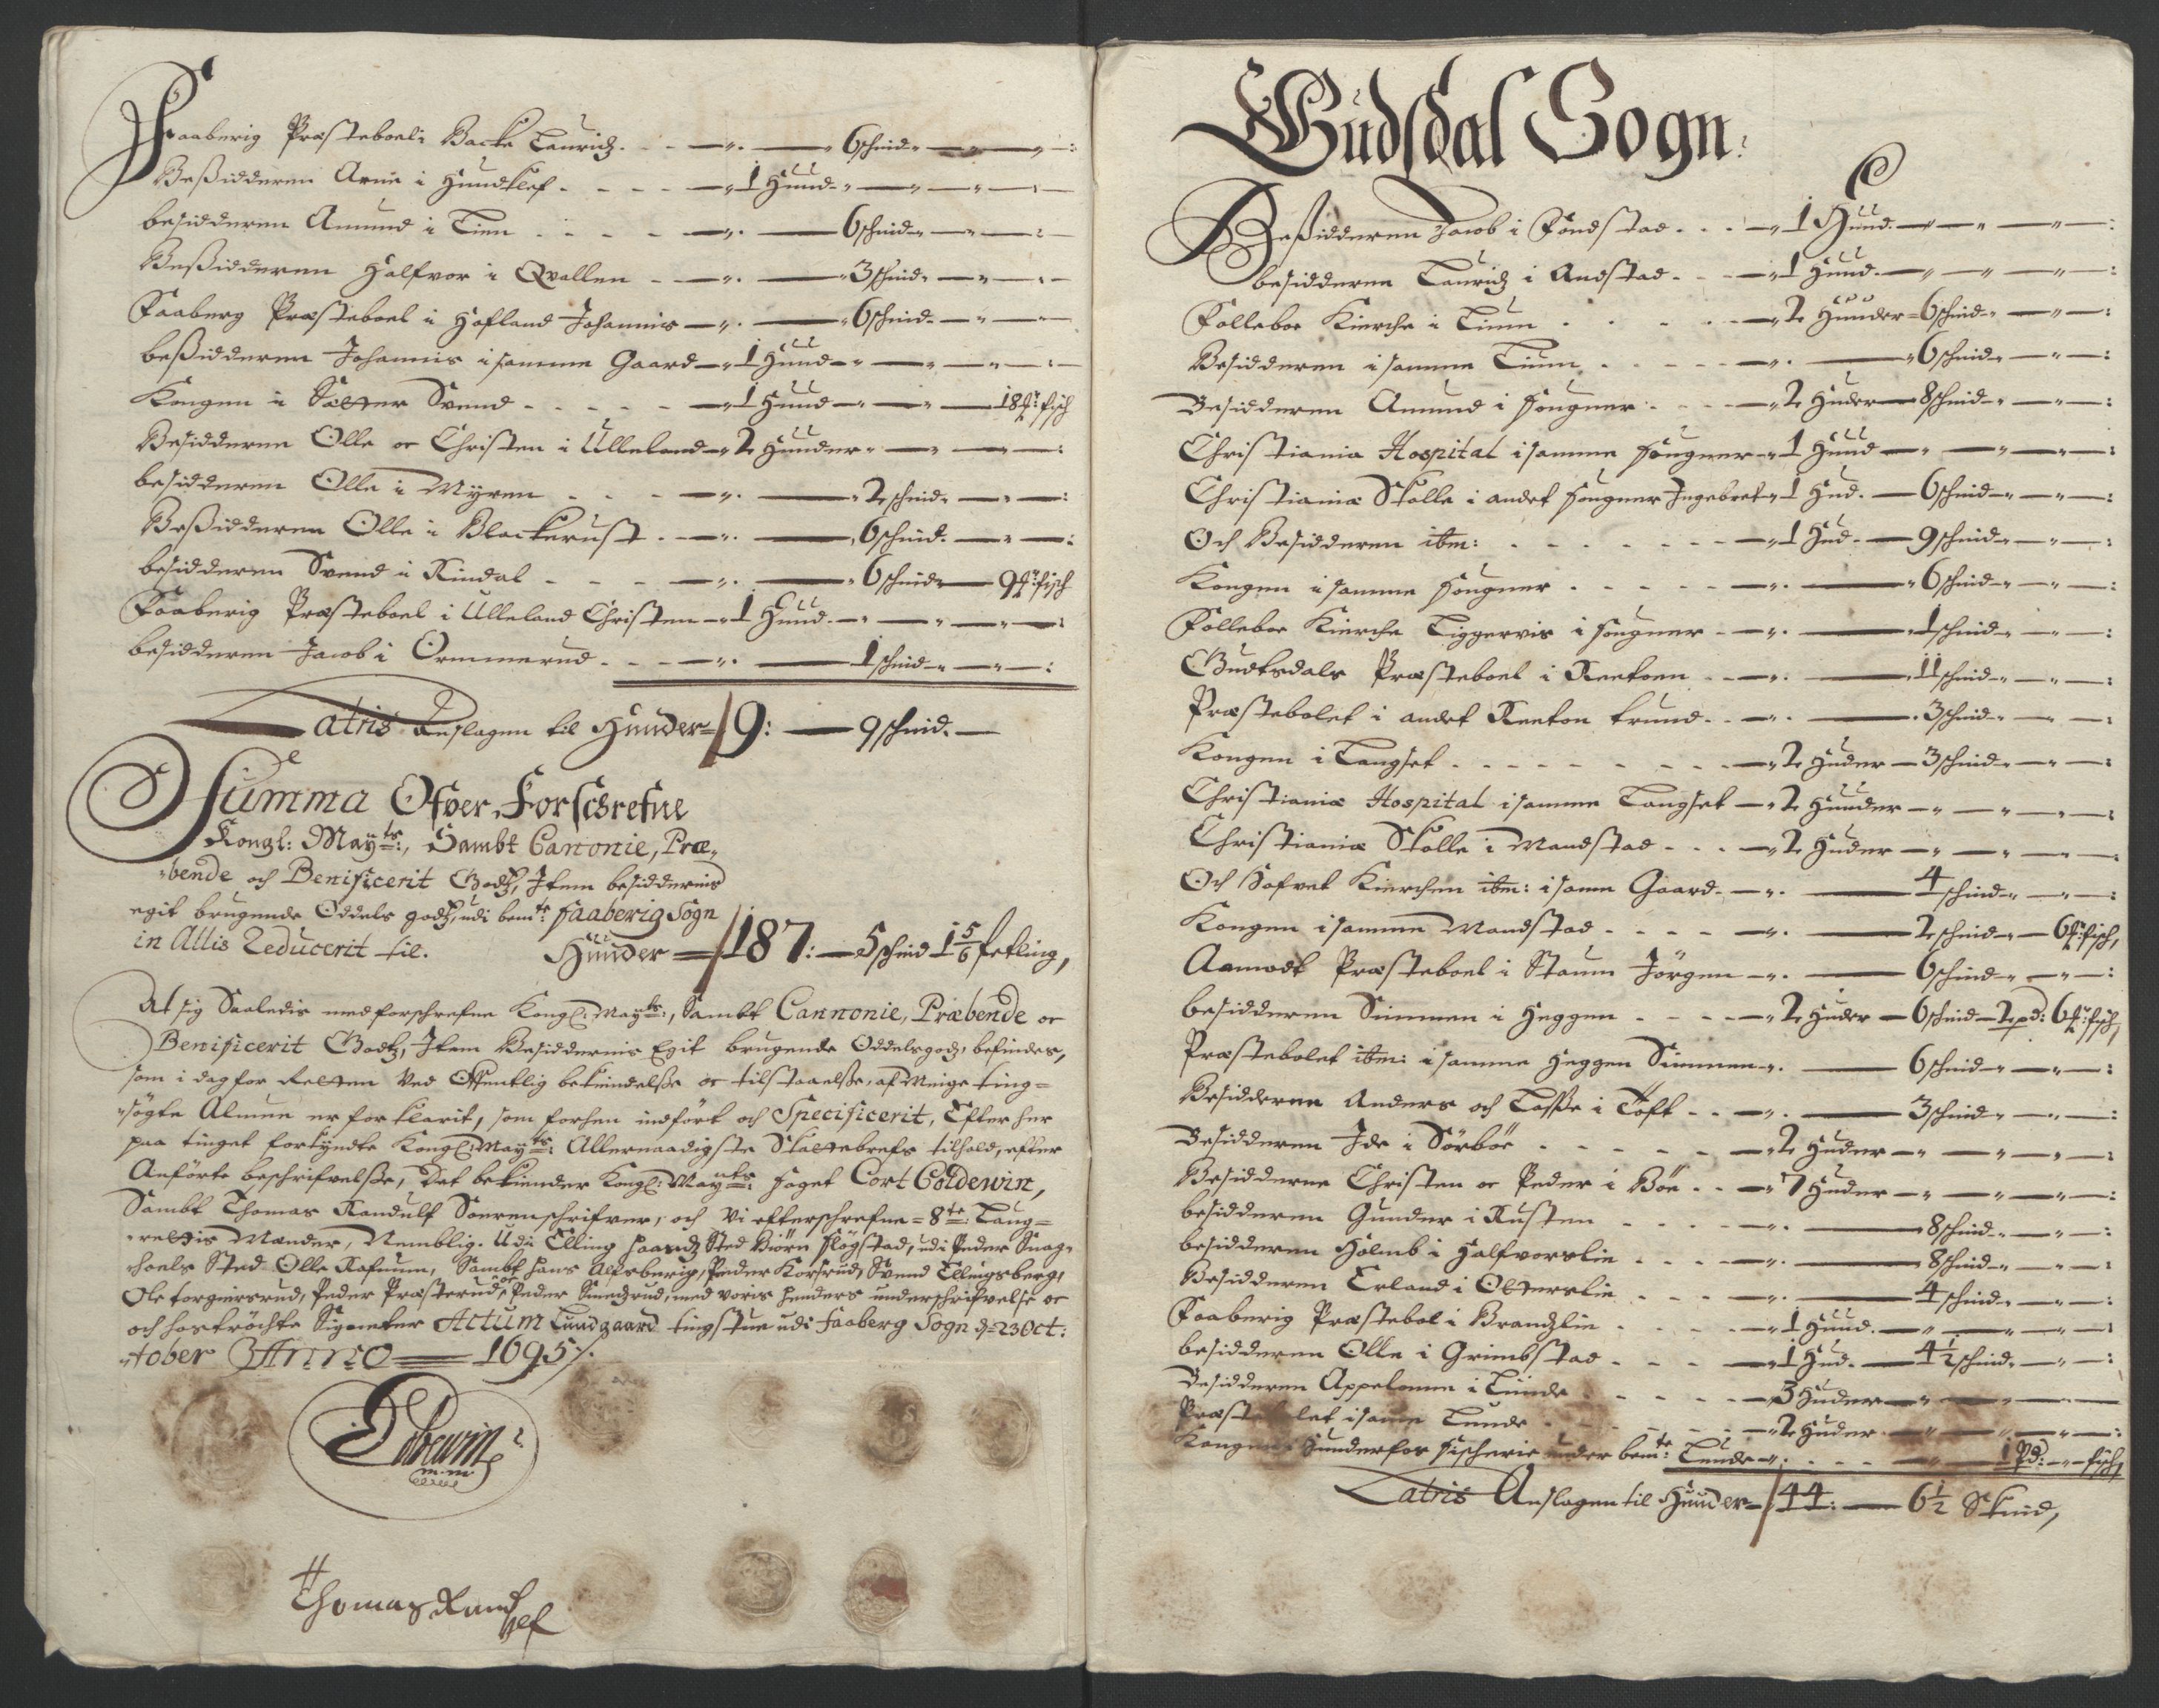 Faaberig Præsteboel: Backe Lauridz . - - „ — 6 schind „ — „ — :
Beßidderen Arne i Hundklef . - - - - 1 Huud „ — „ — „ —
besidderen Amund i Lien . - - - „ — 6 schind „ — „ —
Beßidderen Halfvor i Qvallen - - „ — 3 schind „ — „ —
Faaberg Præsteboel i Hofland Johannis — „ — 6 schind „ — „ —
beßidderen Johannis i samme Gaard — 1 Huud „ — „ — „ —
Kongen i Sætter Svend - - - - 1 Huud — „ — 18 fisch
Besidderne Olle oc Christen i Ulleland — 2 Huuder „ — „ — „ — :
besidderen Olle i Myren - - - „ — 2 schind „ — „ — :
Beßidderen Olle i Blackerust . - „ — 6 schind . — „ — :
besidderen Svend i Rindal - - - „ — 6 schind — 9 fisch
Faaberig Præsteboel i Ulleland Christen — 1 Huud . — „ — „ — :
besidderen Jacob i Ormmerud . - - „ — 1 schind — „ — :
Latris Anslagen til Huuder = 19 : — 9 schind . —
Summa Ofver Forschrefne
Kongl: Mayts:, Sambt Canonie, Præ„
„bende och Benificerit Godtz, Item besiddernis
egit brugende Oddels godtz, udi bemte: faaberig Sogn
in Allis Reducerit til. Huuder = 187 : — 5 schind 1 5/6 fetling,
At sig Saaledis med forschrefne Kongl: Mayts:, Sambt Cannonie, Præbende oc
Benificerit Godtz, Item Besiddernis Egit brugende Oddels godtz, befindes,
som i dag for Retten Ved Offentlig bekiendelße oc tilstaaelße, af Meige ting=
„søgte Almue er forklarit, som forhen indført och Specificerit, Efter her
paa tinget forkyndte Kongl: Mayts: Allernaadigste Skattebrefs tilhold, efter
Anførte beskrifvelße, Det bekiender Kongl: Mayts: foget Cort Coldewin,
Sambt Thomas Randulf Sorenschrifver, och Vi efterschrefne = 8te: Laug=
„rettis Mænder, Nemblig. Udi Elling Sted Biørn Fløgstad, udi Peder
Sted Olle Rafnum, Sambt Hans Alfsberig, Peder Korsrud, Svend Ellingsberg,
Ole torgiersrud, Peder Præsterud, oc Peder Smedsrud, med voris henders underschrifvelse oc
och hostrøchte Signeter Actum Lundgaard tingstue udi faaberg Sogn d: 23 Oct:
„tober Anno = 1695 /.
Coldewin
m.m.
Thomas Rand
olf
Gudsdal Sogn:
Beßidderen Jacob i Fondstad . - - 1 Huud . — „ — „ — :
besidderen Lauridz i Andstad - - 1 Huud . — „ — „ — :
Folleboe Kierche i Linn . - - - 2 Huuder = 6 schind „ — „ — :
Besidderen i samme Linn . - - - „ — 6 schind „ — „ — :
Besidderen Amund i Hougner - - 2 Huder — 8 schind „ — „ — :
Christiania Hospital i samme Hougner - 1 Huud — „ — „ — :
Christianiæ Skolle i andet Hougner Ingebret „ 1 Hud . — 6 schind „ — „ — :
Och Besidderen ibm: . - - - - 1 Hud . — 9 schind „ — „ — :
Kongen i samme Hougner . - - - „ — 6 schind „ — „ — :
Folleboe Kierche Liggervis i Hougner - - „ — 1 schind „ — „ — :
Gudtsdals Præsteboel i Reeton - - „ — 11 schind „ — „ — :
Præstebolet i andet Reeton trund - - „ — 3 schind „ — „ — :
Kongen i Langset - - - - - 2 Huder — 3 schind „ — „ — :
Christianiæ Hospital i samme Langset — 2 Huuder — „ — „ — :
Christianiæ Skolle i Mandstad . - - 2 Huder — „ — „ — „ —
Och Hofvet Kierchen ibm: i samme Gaard — „ — 4 schind „ — „ — :
Kongen i samme Mandstad . - - - „ — 2 schind „ — 6 fisch,
Aamodt Præsteboel i Staum Jørgen — „ — 6 schind „ — „ — :
besidderen Simmen i Heggen - - - 2 Huder — 6 schind — 2 pd: 6 fisch,
Præstebolet ibm: i samme Heggen Simmen — „ — 6 schind „ — „ — :
Besidderne Anders och Lasße i Toft - - „ — 3 schind „ — „ — :
Besidderen Ide i Sørbøe - - - - 2 Huder — „ — „ — :
Besidderne Christen oc Peder i Bøe . - - 7 Huder — „ — „ — :
besidderen Gunder i Rusten - - - „ — 8 schind „ — „ — :
besidderen Holmb i Halfvorslie - - - „ — 8 schind „ — „ — :
Besidderen Erland i Olterslie - - - „ — 4 schind „ — „ — :
Faaberig Præstebol i Brandzlie . - - - 1 Huud . — „ — „ — :
besidderen Olle i Grimbstad . - - - 1 Hud . — 4 1/2 schind . — „ — :
Besidderen Appelonne i Lunde - - - - 3 Huder — „ — „ —
Præstebolet i samme Lunde . - - - 2 Huder . — „ — „ — :
Kongen for fischerie under bemte: Lunde — „ - - - 1 Pd: — fisch,
Latris Anslagen til Huuder = 44 : — 6 1/2 Skind,